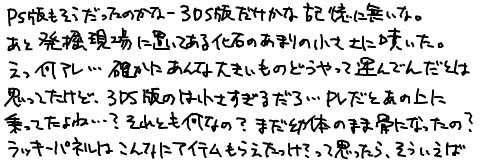 PS版もそうだったのかなー3DS版だけかな 記憶に無いな。
あと発掘現場に置いてある化石のあまりの小ささに噴いた。
えっ何アレ…確かにあんな大きいものどうやって運んでんだとは
思ってたけど、3DS版のは小さすぎるだろ…PSだとあの上に
乗ってたよね…?それとも何なの?まだ幼体のまま骨になったの?
ラッキーパネルはこんなにアイテムもらえたっけ?って思ったら、そういえば